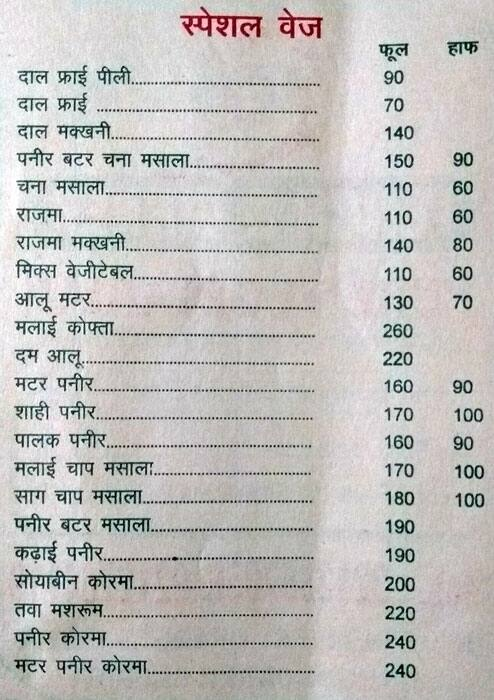 स्पेशल वेज
फूल हाफ
दाल फ्राई पीली 90
दाल फ्राई 70
दाल मक्खनी 140
पनीर बटर चना मसाला 150 90
चना मसाला 110 60
राजमा 110 60
राजमा मक्खनी 140 80
मिक्स वेजीटेबल 110 60
आलू मटर 130 70
मलाई कोफ्ता 260
दम आलू 220
मटर पनीर 160 90
शाही पनीर 170 100
पालक पनीर 160 90
मलाई चाप मसाला 170 100
साग चाप मसाला 180 100
पनीर बटर मसाला 190
कढ़ाई पनीर 190
सोयाबीन कोरमा 200
तवा मशरूम 220
पनीर कोरमा 240
मटर पनीर कोरमा 240